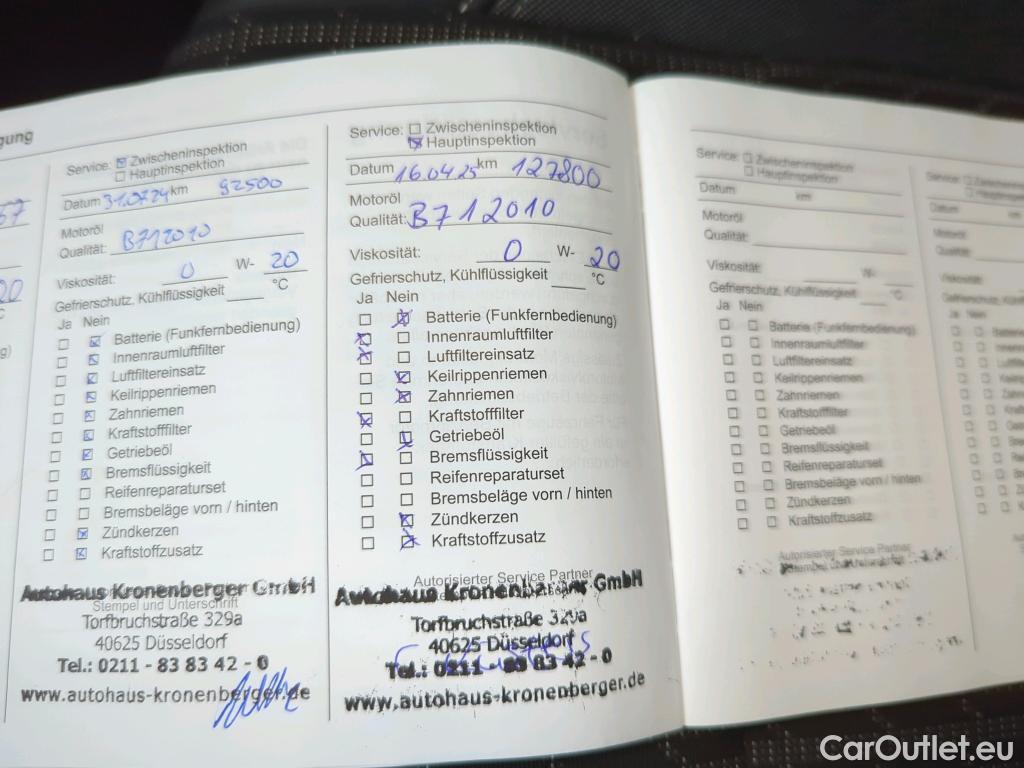 gung
57
20
Service: Zwischeninspektion
Hauptinspektion
Datum 31.07.24 km 92500
Motoröl
Qualität: B712010
Viskosität: 0 W- 20
Gefrierschutz, Kühlflüssigkeit °C
Ja Nein
Batterie (Funkfernbedienung)
Innenraumluftfilter
Luftfiltereinsatz
Keilrippenriemen
Zahnriemen
Kraftstofffilter
Getriebeöl
Bremsflüssigkeit
Reifenreparaturset
Bremsbeläge vorn / hinten
Zündkerzen
Kraftstoffzusatz
Autohaus Kronenberger GmbH
Stempel und Unterschrift
Torfbruchstraße 329a
40625 Düsseldorf
Tel.: 0211 - 83 83 42 - 0
www.autohaus-kronenberger.de
Service: Zwischeninspektion
Hauptinspektion
Datum 16.04.25 km 127800
Motoröl
Qualität: B712010
Viskosität: 0 W- 20
Gefrierschutz, Kühlflüssigkeit °C
Ja Nein
Batterie (Funkfernbedienung)
Innenraumluftfilter
Luftfiltereinsatz
Keilrippenriemen
Zahnriemen
Kraftstofffilter
Getriebeöl
Bremsflüssigkeit
Reifenreparaturset
Bremsbeläge vorn / hinten
Zündkerzen
Kraftstoffzusatz
Autorisierter Service Partner
Autohaus Kronenberger GmbH
Torfbruchstraße 329a
40625 Düsseldorf
Tel.: 0211 - 83 83 42 - 0
www.autohaus-kronenberger.de
Service: Zwischeninspektion
Hauptinspektion
Datum km
Motoröl
Qualität:
Viskosität: W-
Gefrierschutz, Kühlflüssigkeit °C
Ja Nein
Batterie (Funkfernbedienung)
Innenraumluftfilter
Luftfiltereinsatz
Keilrippenriemen
Zahnriemen
Kraftstofffilter
Getriebeöl
Bremsflüssigkeit
Reifenreparaturset
Bremsbeläge vorn / hinten
Zündkerzen
Kraftstoffzusatz
Autorisierter Service Partner
Service:
Datum
Motoröl
Qualität:
Viskosität:
Ja Nein
CarOutlet.eu